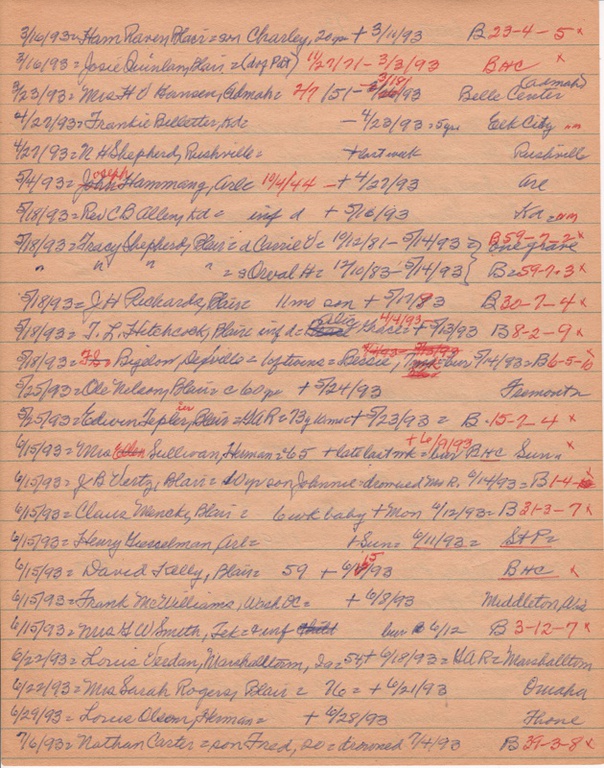 3/16/93 = Ham Raven, Blair = son Charley, 20 yr + 3/11/93 B 23-4-5 x
3/16/93 = Josie Quinlan, Blair = 11/27/71 - 3/3/93 BHC x
3/23/93 = Mrs H V Hansen, Admah = 2/7/51 - 3/18/93 Belle Center (Admah)
4/27/93 = Frankie Belletter, Kd = - 4/23/93 = 5 yr Elk City
4/27/93 = N H Shepherd, Rushville = + last week Rushville
5/4/93 = Joseph Hammang, Arl = 10/4/44 - + 4/22/93 Arl
5/18/93 = Rev C B Allen, Kd = inf d + 5/16/93 Kd =
5/18/93 = Tracy Shepherd, Blair = d Carrie V = 10/12/81 - 5/14/93 = B 59-7-2 x one grave
" " " " = s Orval H = 12/10/83 - 5/14/93 B = 59-7-3 x
5/18/93 = J H Richards, Blair 11 mo son + 5/17/93 B 30-7-4 x
5/18/93 = T. L. Hitchcock, Blair inf d = Alice Grace = 4/4/93 + 5/13/93 B 8-2-9 x
5/18/93 = Bigelow, DeSoto = 1 of twins = Bessie, bur 5/14/93 = B 6-5-10 x
5/25/93 = Ole Nelson, Blair = c 60 yr + 5/24/93 Fremont
5/25/93 = Edwin Tepler, Blair = GAR = 73 y + 5/23/93 = B 15-7-4 x
6/15/93 = Mrs Sullivan, Herman = 65 + late last wk = + 6/9/93 bur BHC Sun x
6/15/93 = J B Vertz, Blair = 10 yr son Johnnie = drowned Mo R, 6/14/93 = B 1-4- x
6/15/93 = Claus Mencke, Blair = 6 wk baby + Mon 6/12/93 = B 31-3-7 x
6/15/93 = Henry Giesselman, Arl = + Sun = 6/11/93 = St P =
6/15/93 = David Talley, Blair = 59 + 6/15/93 BHC x
6/15/93 = Frank McWilliams, Wash DC = + 6/8/93 Middleton, Wis
6/15/93 = Mrs G W Smith, Tek = inf bur 6/12 B 3-12-7 x
6/22/93 = Louis Verdan, Marshalltown, Ia = 54 + 6/18/93 = GAR = Marshalltown
6/22/93 = Mrs Sarah Rogers, Blair = 76 = + 6/21/93 Omaha
6/29/93 = Louis Olson, Herman = + 6/28/93 Home
7/6/93 = Nathan Carter = son Fred, 20 = drowned 7/4/93 B 39-3-8 x